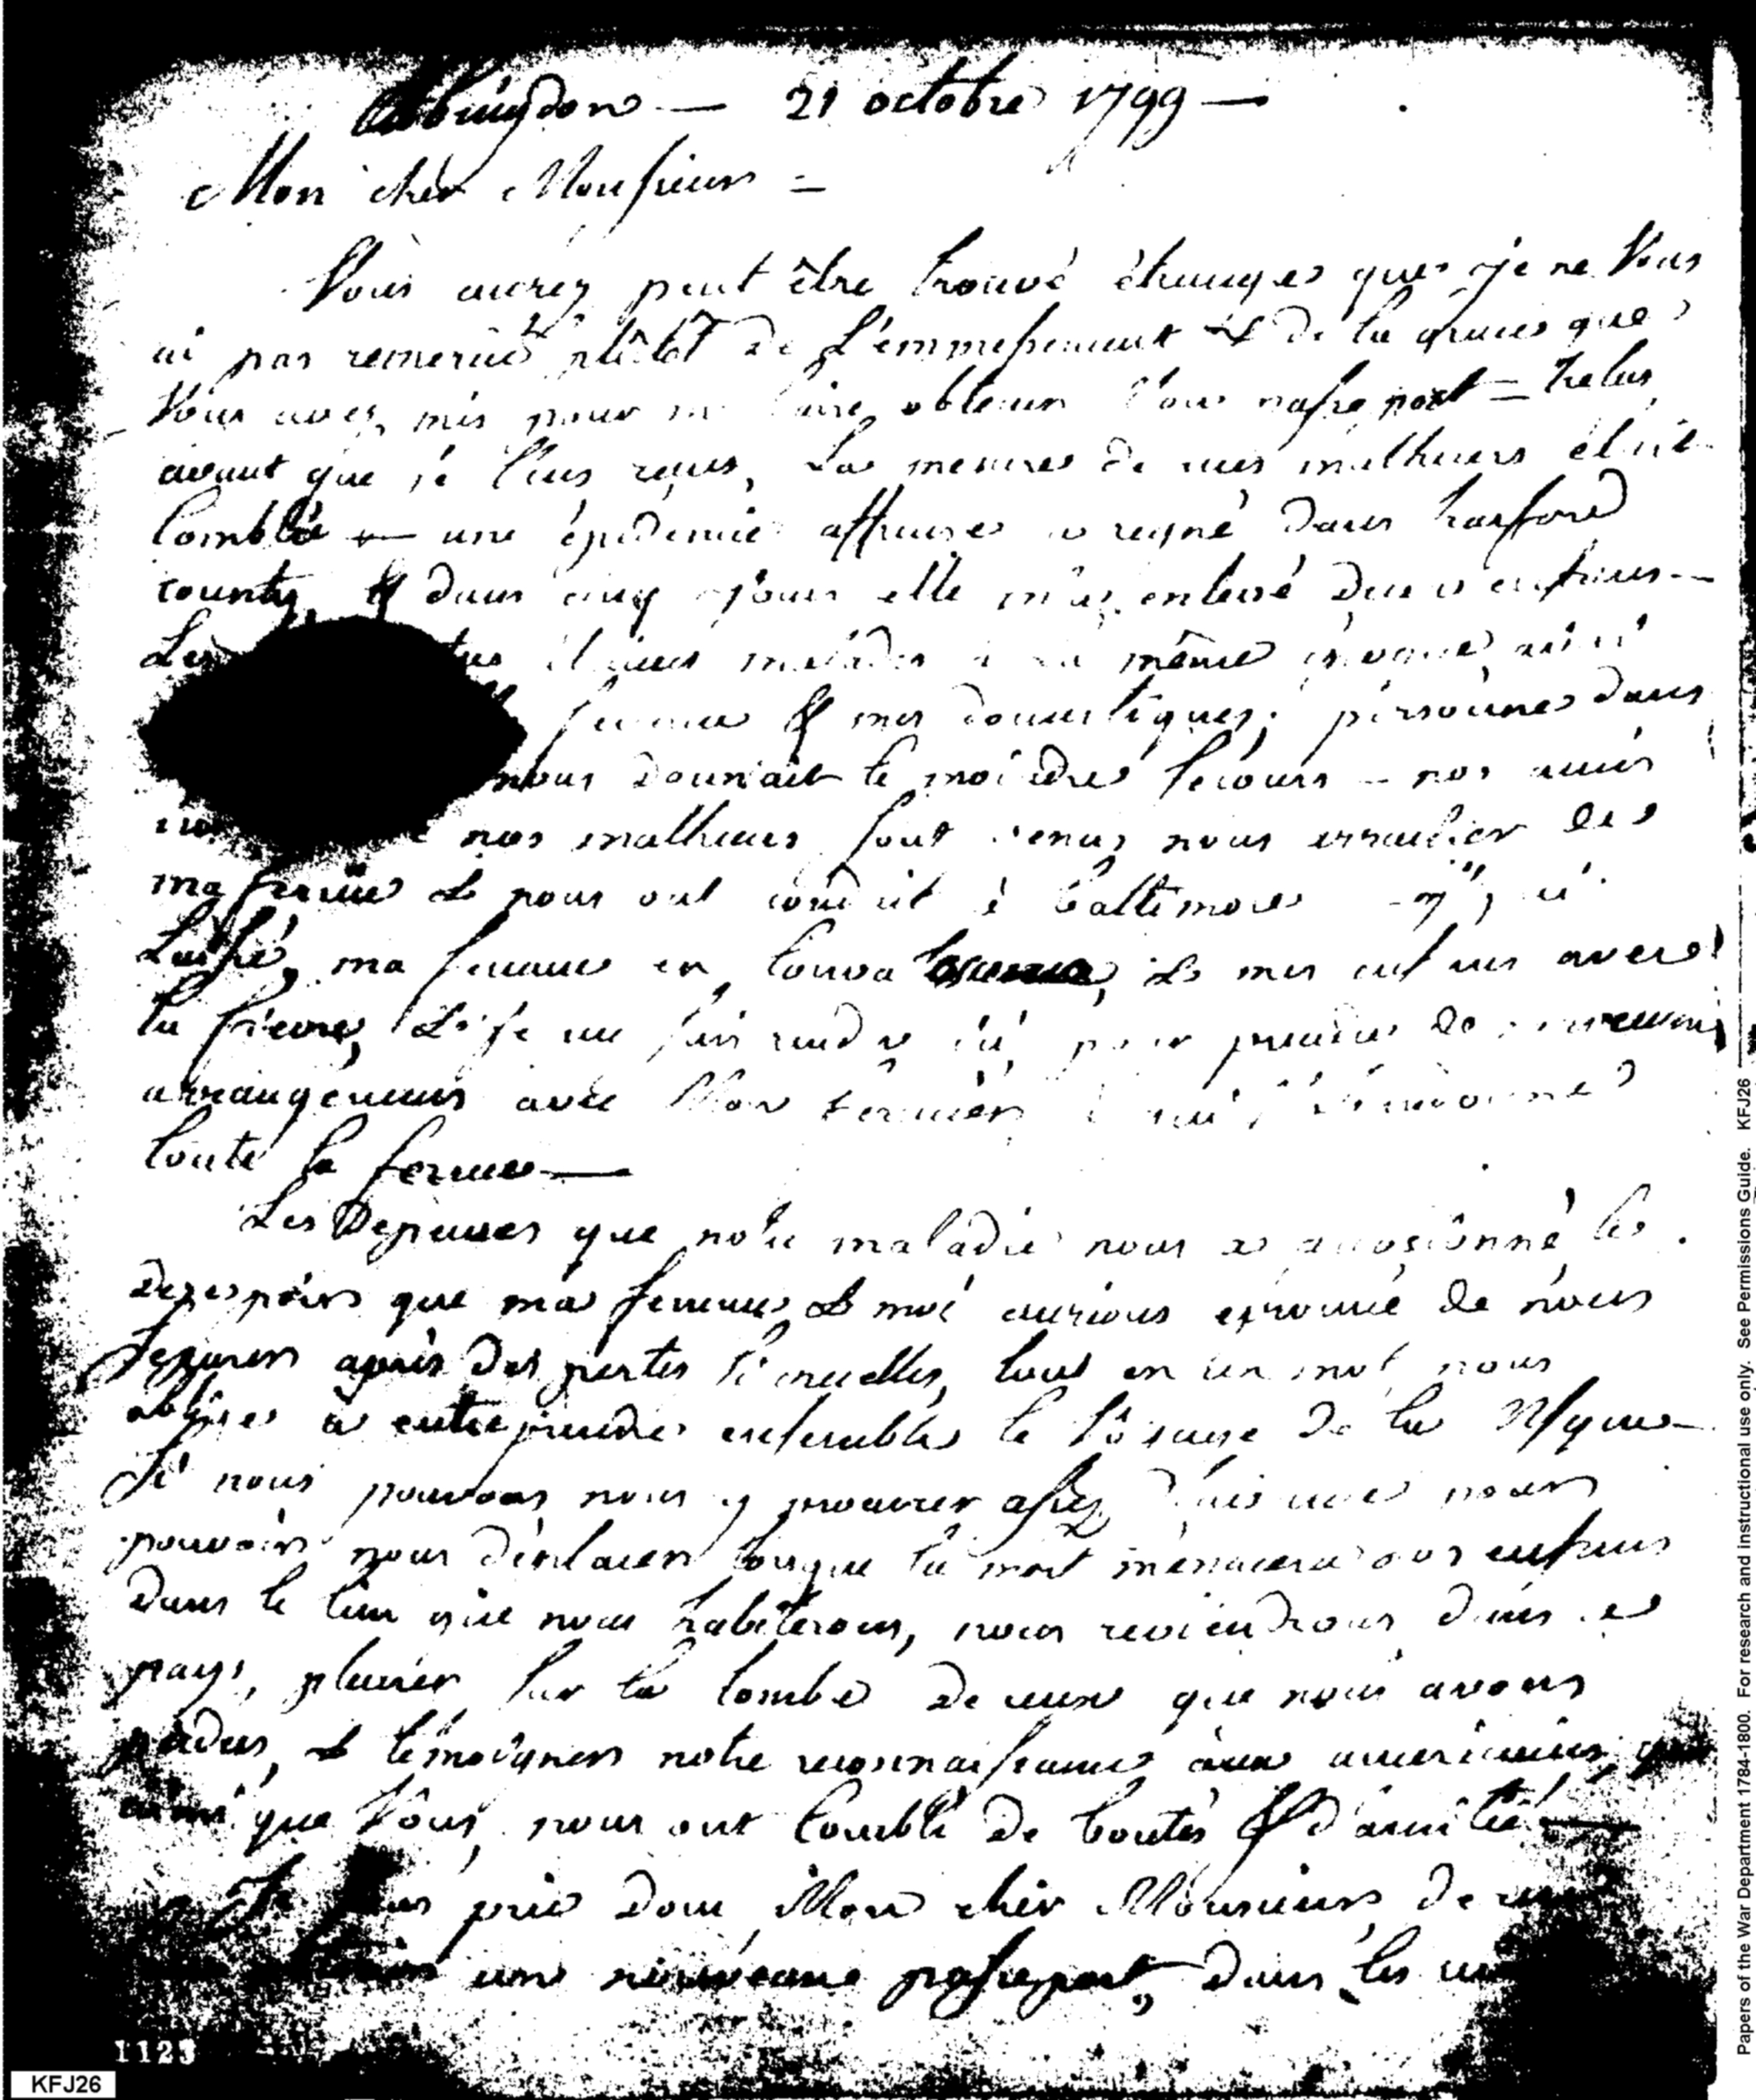 Abbingdon — 21 octobre 1799 —
Mon cher Monsieur =
Vous aurez peut être trouvé étrange que je ne Vous
ai pas remercié plutôt de L'empressement & de la grace que
Vous avez mis pour me faire obtenir mon passeport = helas
avant que je l'eus reçus, La mesure de mes malheurs était
Comblé — une épidemie affreuse a regné dans harford
county, & dans cinq jours elle m'as enlevé deux enfans —
Les étaient malades à la même époque, ainsi
femme & mes domestiques; personne dans
nous donnait le moindre secours — nos amis
nos malheurs sont venus nous arracher de
ma ferme & nous ont conduit à baltimore j'y ai
Laissé, ma femme en Convalescence, & mes enfans avec
la fievre, & je me suis rendu ici, pour prendre de nouveaux
arrangemens avec Mon fermier à qui j'ai abandonné
toute la ferme —
Les Depenses que notre maladie nous a occasionné le
desespoir que ma femme & moi aurions eprouvé de nous
separer après des pertes si cruelles, tout en un mot nous
oblige a entreprendre ensemble le voyage de la
Si nous pouvons nous y procurer assez d'aisance pour
pouvoir nous déplacer lorsque la mort menacera nos enfans
Dans le lieu que nous habiterons, nous reviendrons dans ce
pays, pleurer sur la tombe de ceux que nous avons
perdus, & témoigner notre reconnaissance aux americains, qui
ainsi que Vous, nous ont Comblé de bontés & d'amitié —
Je Vous prie donc Mon cher Monsieur de
une nouveaue passeport, dans les
1123
KFJ26
Papers of the War Department 1784-1800. For research and instructional use only. See Permissions Guide. KFJ26